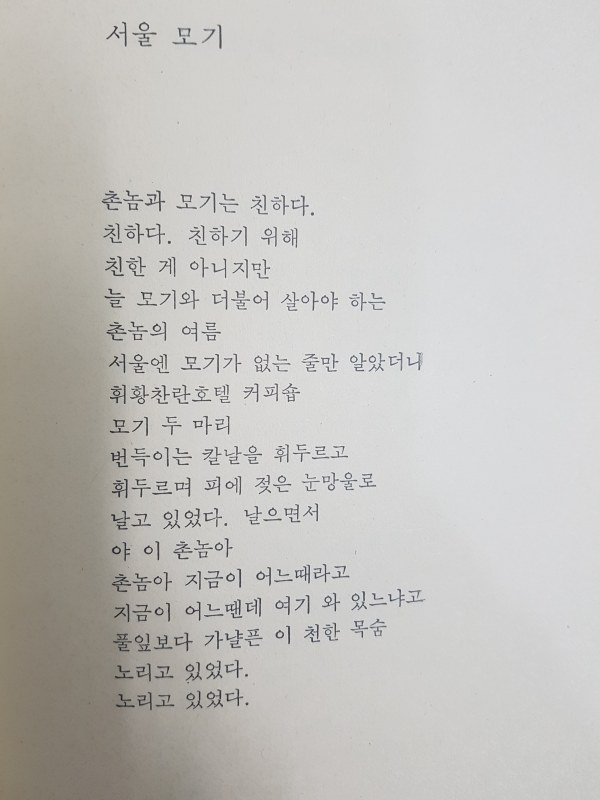 서울 모기
촌놈과 모기는 친하다.
친하다. 친하기 위해
친한 게 아니지만
늘 모기와 더불어 살아야 하는
촌놈의 여름
서울엔 모기가 없는 줄만 알았더니
휘황찬란호텔 커피숍
모기 두 마리
번득이는 칼날을 휘두르고
휘두르며 피에 젖은 눈망울로
날고 있었다. 날으면서
야 이 촌놈아
촌놈아 지금이 어느때라고
지금이 어느땐데 여기 와 있느냐고
풀잎보다 가냘픈 이 천한 목숨
노리고 있었다.
노리고 있었다.